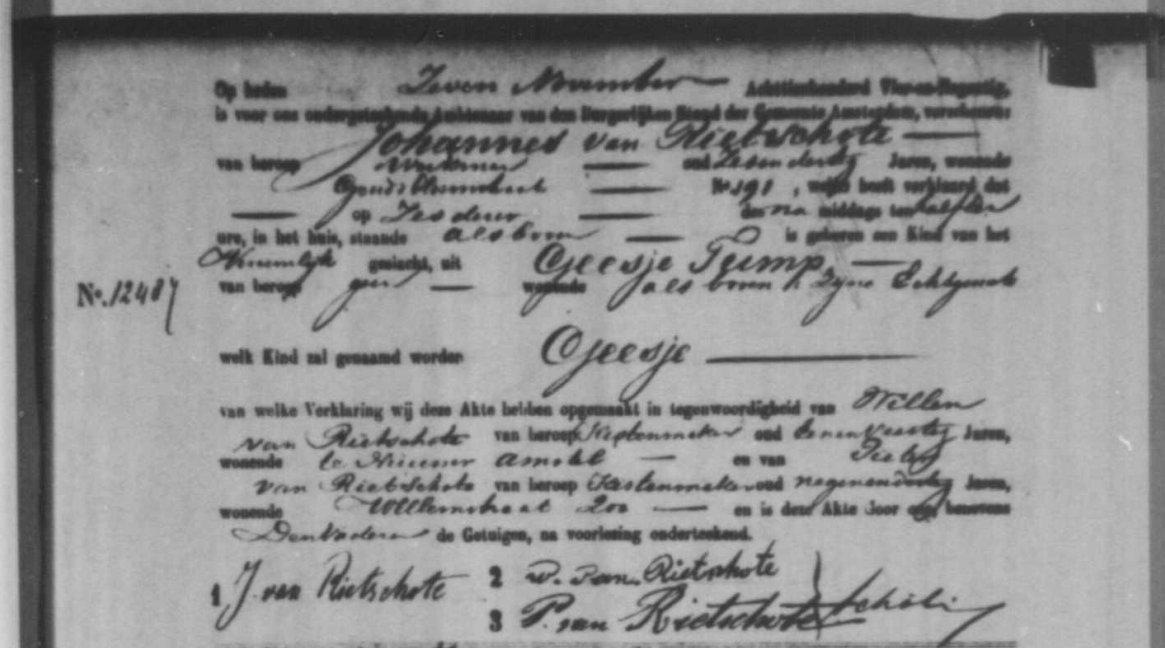 Op heden Zeven November Achttienhonderd Vier-en-Negentig,
is voor ons ondergeteekende Ambtenaar van den Burgerlijken Stand der Gemeente Amsterdam, verschenen:
Johannes van Rietschote
van beroep Werkman oud Zesendertig Jaren, wonende
Goudsbloemstraat No. 191, welke heeft verklaard, dat
op Zes dezer des na middags ten half tien
ure, in het huis, staande als boven is geboren een Kind van het
Vrouwelijk geslacht, uit Geesje Tump
van beroep geen wonende als boven Zijne Echtgenoote
No. 12487
welk Kind zal genaamd worden Geesje
van welke Verklaring wij deze Akte hebben opgemaakt in tegenwoordigheid van Willem
van Rietschote van beroep Kistenmaker oud Eenenveertig Jaren,
wonende te Nieuwer Amstel en van Pieter
van Rietschote van beroep Kistenmaker oud negenendertig Jaren,
wonende Willemstraat 200 en is deze Akte door ons, benevens
Den Vader en de Getuigen, na voorlezing onderteekend.
1 J. van Rietschote 2 W. van Rietschote
3 P. van Rietschote